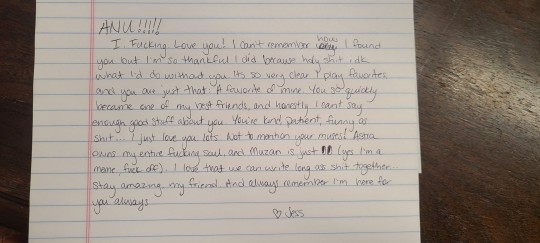 ANU!!!!!
I. Fucking. Love you! I can't remember how I found
you but I'm so thankful I did because holy shit idk
what I'd do without you. It's so very clear I play favorites
and you are just that. A favorite of mine. You so quickly
became one of my best friends, and honestly I can't say
enough good stuff about you. You're kind, patient, funny as
shit... I just love you lots. Not to mention your muses! Astra
owns my entire fucking soul, and Muzan is just (yes I'm a
meme, fuck off). I love that we can write long ass shit together.
Stay amazing, my friend. And always remember I'm here for
you always
♡ Jess